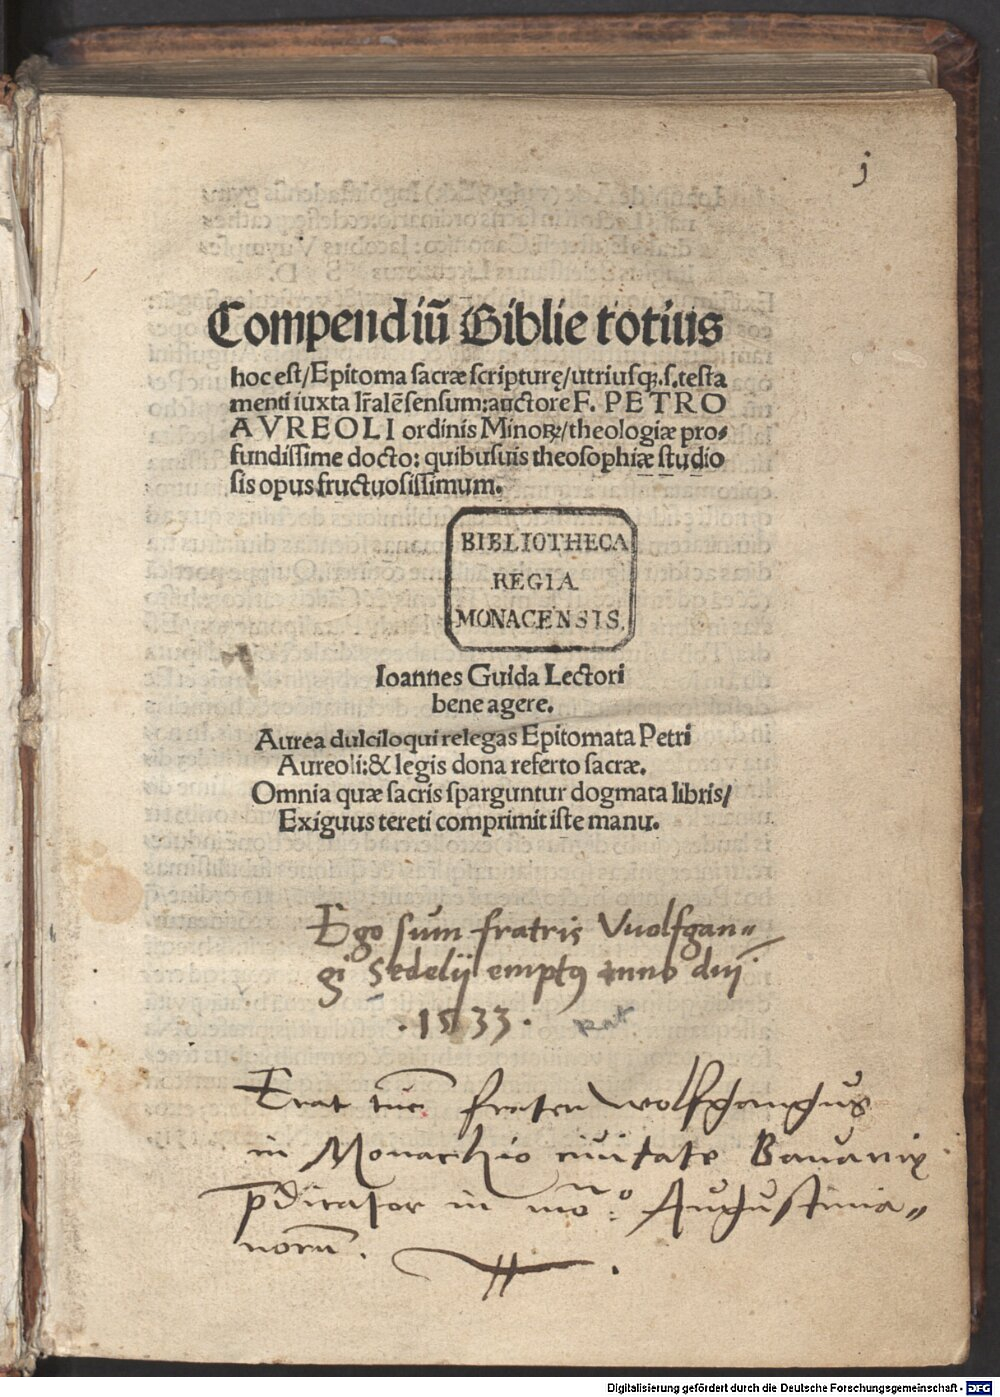 j
Compendiū Biblie totius
hoc est/Epitoma sacræ scripturę/utriusqꝫ.s.testa
menti iuxta lr̄alē sensum:auctore F. PETRO
AVREOLI ordinis Minoꝝ/theologiæ pro-
fundissime docto: quibusuis theosophiæ studio
sis opus fructuosissimum.
BIBLIOTHECA
REGIA
MONACENSIS.
Ioannes Guida Lectori
bene agere.
Aurea dulciloqui relegas Epitomata Petri
Aureoli:& legis dona referto sacræ.
Omnia quæ sacris sparguntur dogmata libris/
Exiguus tereti comprimit iste manu.
Ego sum fratris Vuolfgan=
gi Sedelij emptꝯ anno dnj
.1533.
Erat tūc frater wolfgangus
in Monachio ciuitate Bauarię
p̄dicator in mo:ⁿᵒ Augustinia=
norū.
Digitalisierung gefördert durch die Deutsche Forschungsgemeinschaft - DFG